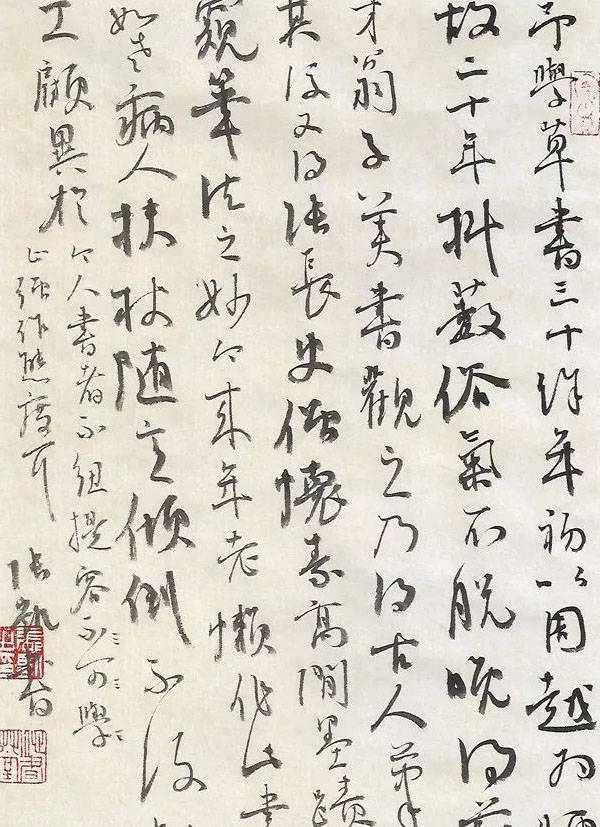 予學草書三十餘年初以周越為師
故二十年抖擻俗氣不脫晚得蘇
才翁子美書觀之乃得古人筆
其後又得張長史僧懷素高閑墨蹟
窺筆法之妙今來年老懶作此書
如老病人扶杖隨意傾倒不復
工顧異於
今人書者不紐提容不可學
止強作態度耳
張